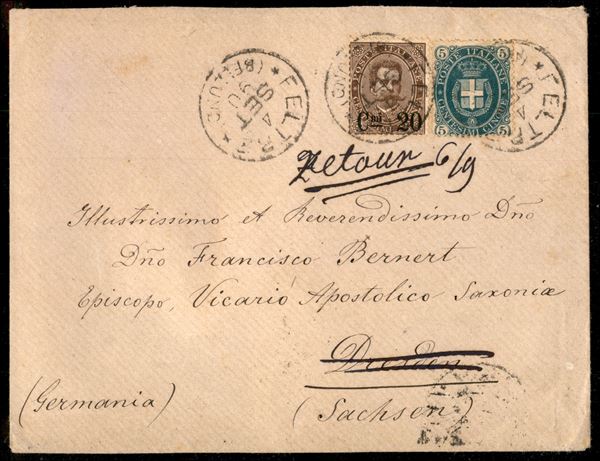 POSTE ITALIANE
Cmi 20
5 POSTE ITALIANE 5
5 CENTESIMI CINQUE 5
FELTRE
(BELLUNO)
4
SET
90
Retour 6/9
Illustrissimo et Reverendissimo Dño
Dño Francisco Bernert
Episcopo, Vicario Apostolico Saxoniæ
Dresden
(Germania) (Sachsen)